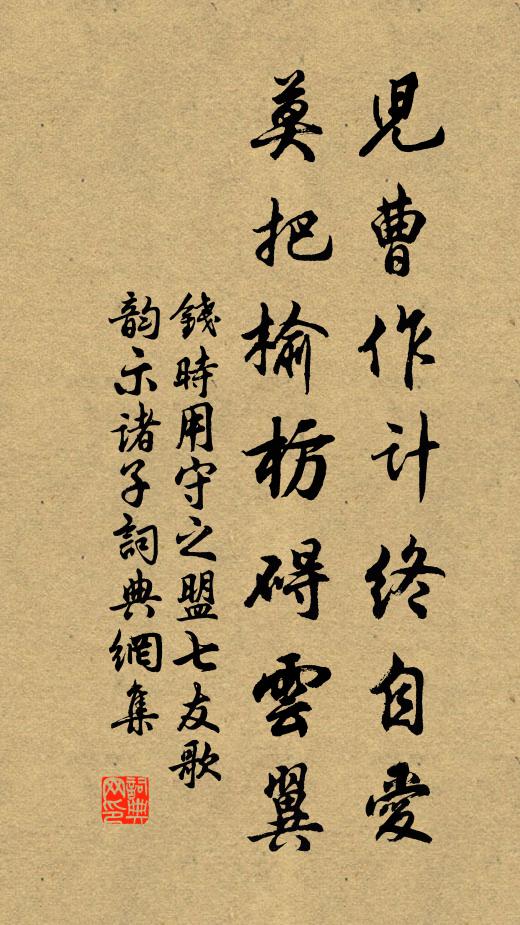 兒曹作計終自愛
莫把榆枋碍雲翼
錢時用守之盟七友歌
韵示诸子詞典網集
詞典网印